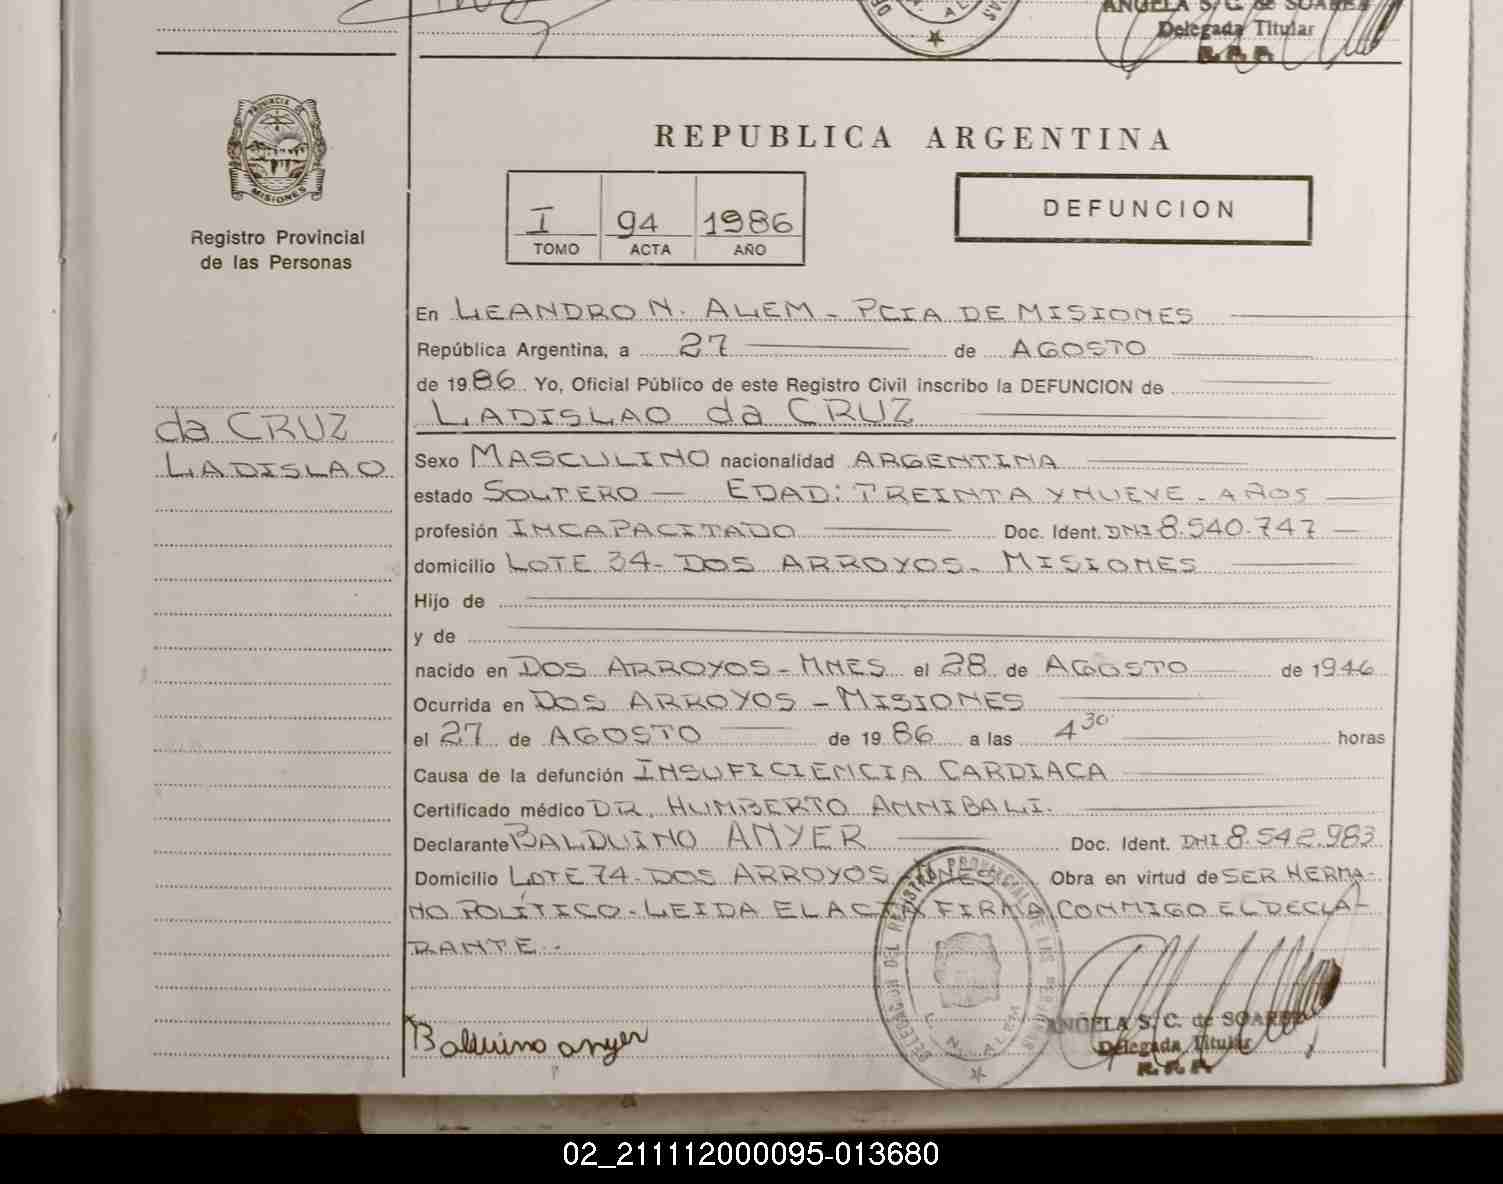 ANGELA S. C. de SOAREZ
Delegada Titular
R.R.P.
PROVINCIA DE
MISIONES
Registro Provincial
de las Personas
REPUBLICA ARGENTINA
I 94 1986
TOMO ACTA AÑO
DEFUNCION
En LEANDRO N. ALEM - PCIA DE MISIONES
República Argentina, a 27 de AGOSTO
de 1986 Yo, Oficial Público de este Registro Civil inscribo la DEFUNCION de
LADISLAO da CRUZ
da CRUZ
LADISLAO
Sexo MASCULINO nacionalidad ARGENTINA
estado SOLTERO - EDAD: TREINTA Y NUEVE - AÑOS
profesión INCAPACITADO Doc. Ident. DNI 8.540.747
domicilio LOTE 34 - DOS ARROYOS - MISIONES
Hijo de
y de
nacido en DOS ARROYOS - MNES el 28 de AGOSTO de 1946
Ocurrida en DOS ARROYOS - MISIONES
el 27 de AGOSTO de 1986 a las 4 30 horas
Causa de la defunción INSUFICIENCIA CARDIACA
Certificado médico DR. HUMBERTO ANNIBALI.
Declarante BALDUINO ANYER Doc. Ident. DNI 8.542.983
Domicilio LOTE 74 - DOS ARROYOS MNES Obra en virtud de SER HERMA-
NO POLÍTICO - LEIDA EL ACTA FIRMA CONMIGO EL DECLA-
RANTE.-
Balduino anyer
L. N. ALEM
ANGELA S. C. de SOAREZ
Delegada Titular
R.R.P.
02_211112000095-013680